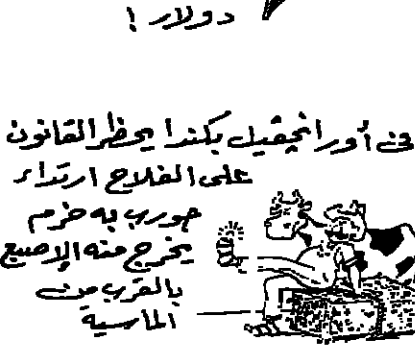 دولار !
في أورانجفيل بكندا يحظر القانون
على الفلاح ارتداء
جورب به خرم
يخرج منه الإصبع
بالقرب من
الماسية